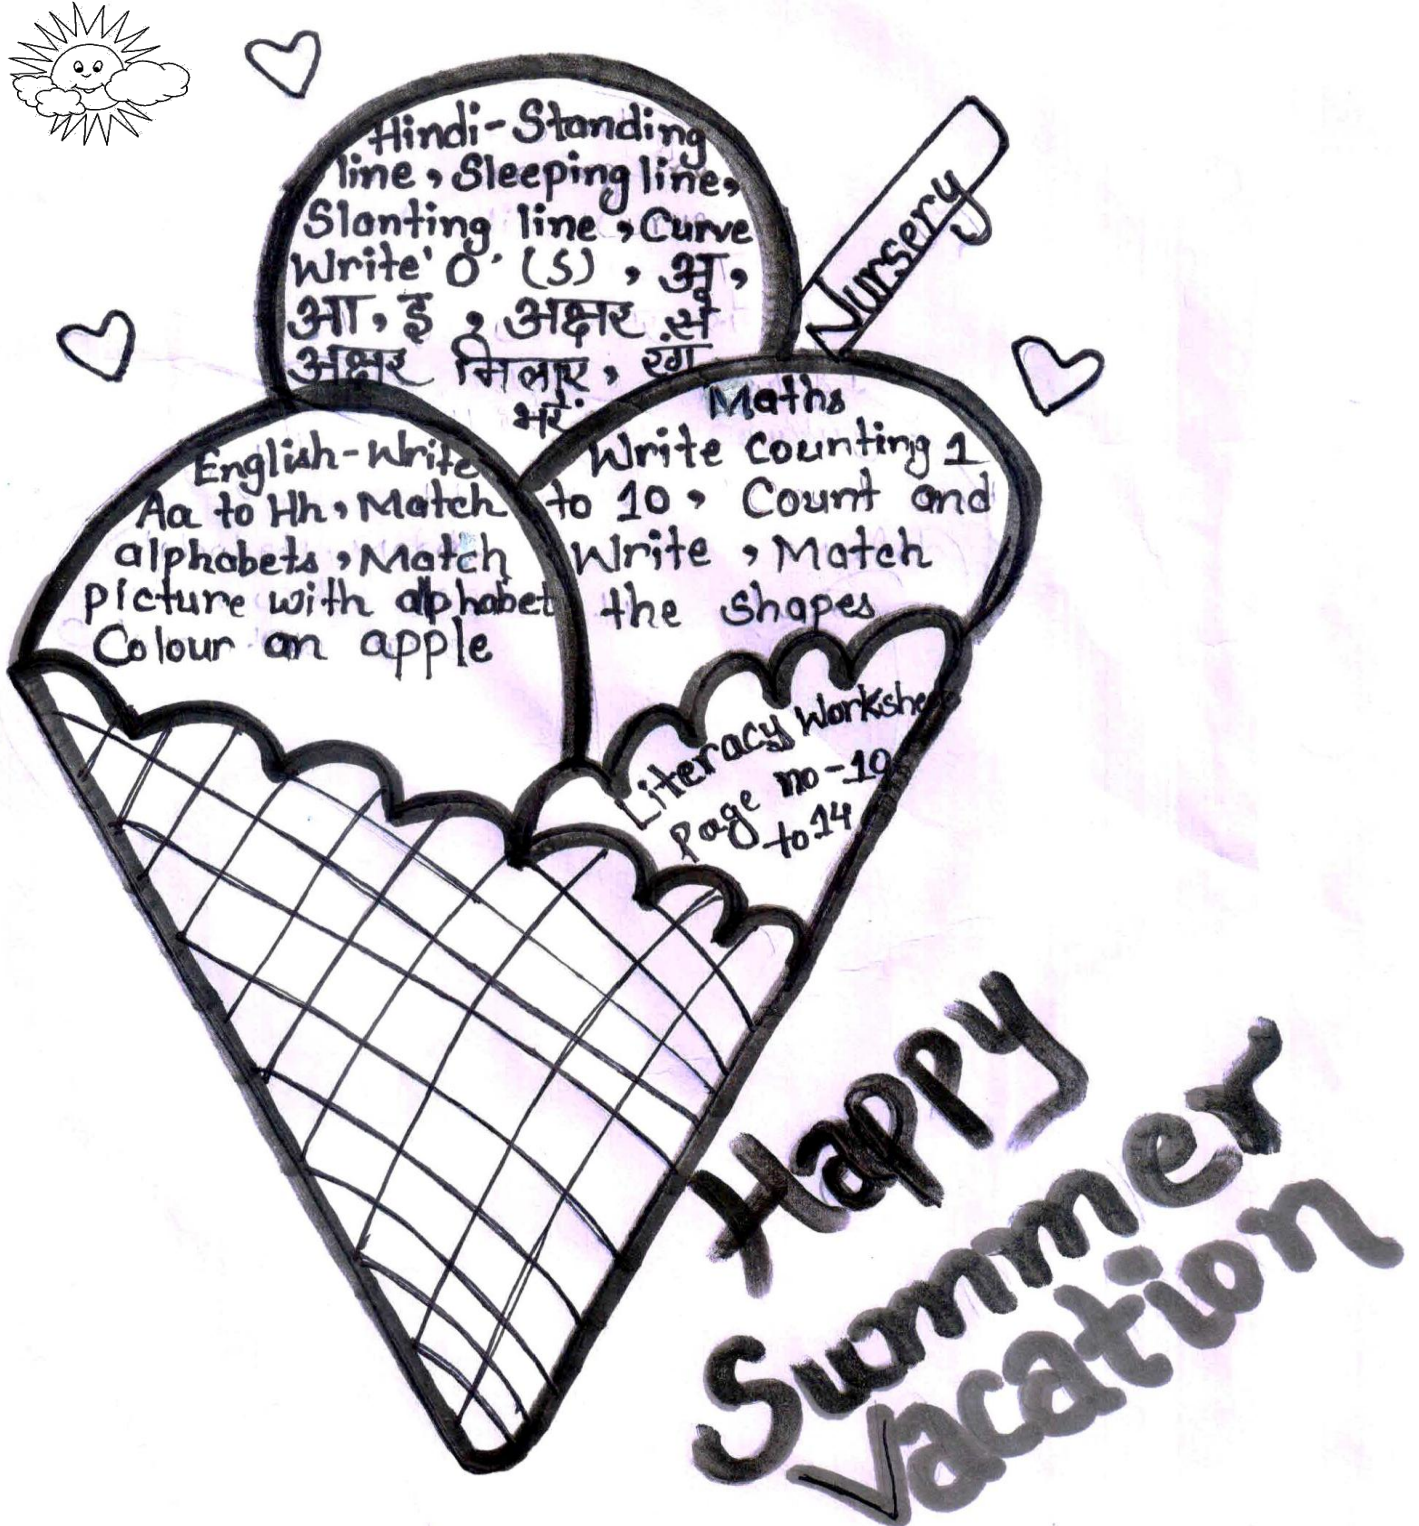 Hindi-Standing
line, Sleeping line,
Slanting line, Curve
Write 'O' (S), अ,
आ, इ, अक्षर से
अक्षर मिलाए, रंग
भरें
Nursery
English-Write
Aa to Hh, Match
alphabets, Match
picture with alphabet
Colour an apple
Maths
Write counting 1
to 10, Count and
Write, Match
the shapes
Literacy Worksheet
Page no-10
to 14
Happy
Summer
Vacation